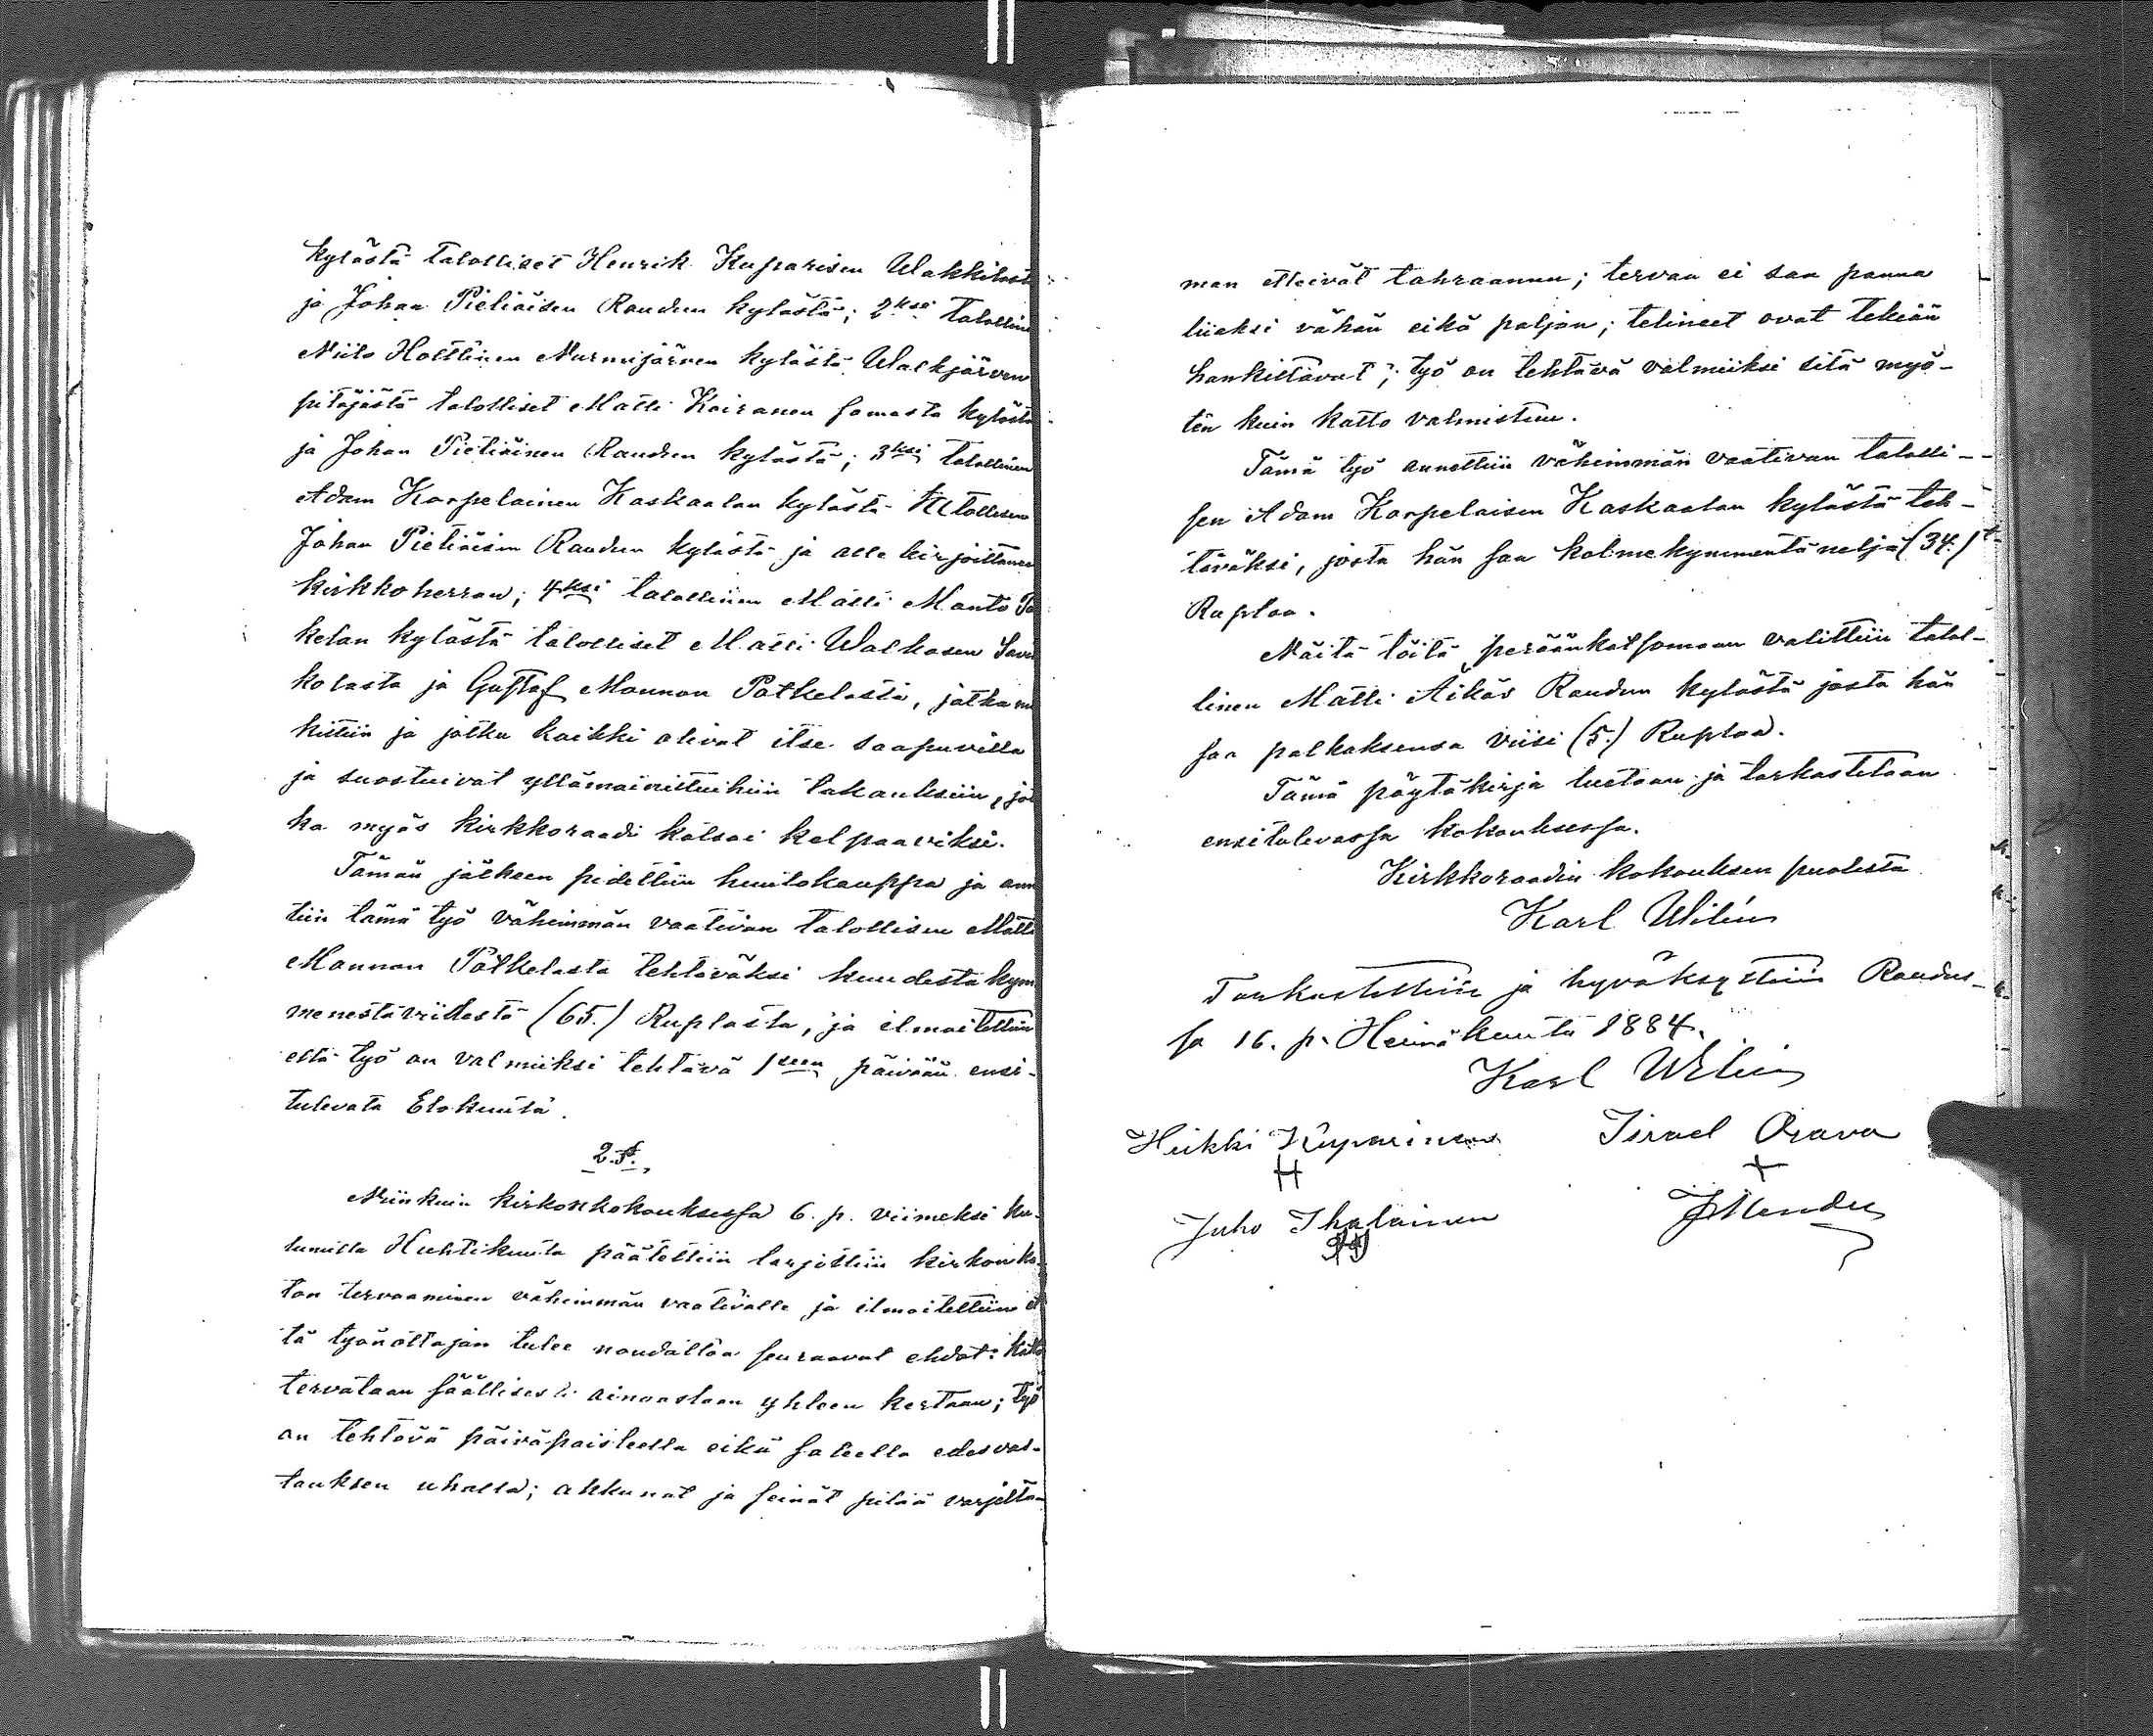 kylästä talolliset Henrik Kuparisen Wakkilast
ja Johan Pietiäisen Raudun kylästä; 2ksi talolline
Niilo Holttinen Nurmijärven kylästä Walkjärven
pitäjästä talolliset Matti Kairanen samasta kylästä
ja Johan Pietiäinen Raudun kylästä; 3ksi talollinen
Adam Karpelainen Kaskaalan kylästä talollisen
Johan Pietiäisen Raudun kylästä ja alle kirjoittanee
kirkkoherran; 4ksi talollinen Matti Manto Pa
kelan kylästä talolliset Matti Walkosen Savi
kolasta ja Gustaf Mannon Palkelasta, jotka me
kittiin ja jotka kaikki olivat itse saapuvilla
ja suostuivat yllämainittuihin takauksiin, jot
ka myös kirkkoraadi katsoi kelpaaviksi.
Tämän jälkeen pidettiin huutokauppa ja ann
tiin tämä työ vähemmän vaativan talollisen Matti
Mannon Palkelasta tehtäväksi kuudestakym
menestäviidestä (65.) Ruplasta, ja ilmoitettiin
että työ on valmiiksi tehtävä 1seen päivään ensi-
tulevata Elokuuta.
2. §.
Niinkuin kirkonkokouksessa 6. p. viimeksi ku-
lunutta Huhtikuuta päätettiin tarjottiin kirkon ka-
ton tervaaminen vähemmän vaativalle ja ilmoitettiin et
tä työnottajan tulee noudattaa seuraavat ehdot: katto
tervataan säällisesti ainoastaan yhteen kertaan; työ
on tehtävä päiväpaisteella eikä sateella edesvas-
tauksen uhalla; akkunat ja seinät pitää varjelta-
man etteivät tahraannu; tervaa ei saa panna
liiaksi vähän eikä paljon; telineet ovat tekiän
hankittavat; työ on tehtävä valmiiksi sitä myö-
ten kuin katto valmistuu.
Tämä työ annettiin vähemmän vaativan talolli-
sen Adam Karpelaisen Kaskaalan kylästä teh-
täväksi, josta hän saa kolmekymmentäneljä (34.)
Ruplaa.
Näitä töitä peräänkatsomaan valittiin talol-
linen Matti Äikäs Raudun kylästä josta hän
saa palkaksensa viisi (5.) Ruplaa.
Tämä pöytäkirja luetaan ja tarkastetaan
ensitulevassa kokouksessa.
Kirkkoraadin kokouksen puolesta
Karl Wilén
Tarkastettiin ja hyväksyttiin Raudus-
sa 16. p. Heinäkuuta 1884.
Karl Wilén
Heikki Kuparinen Israel Orava
Juho Ihalainen